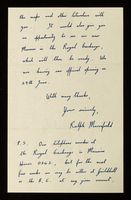 the maps and other literature with
you. It would also give you
an opportunity to see our new
Museum in the Royal Exchange,
which will then be ready. We
are having our official opening on
29th June.
With many thanks,
Yours sincerely,
Ralph Merrifield
P.S. Our telephone number at
the Royal Exchange is Mansion
House 0362, but for the most
few weeks we may be either at Guildhall
or the R.E. at any given moment.